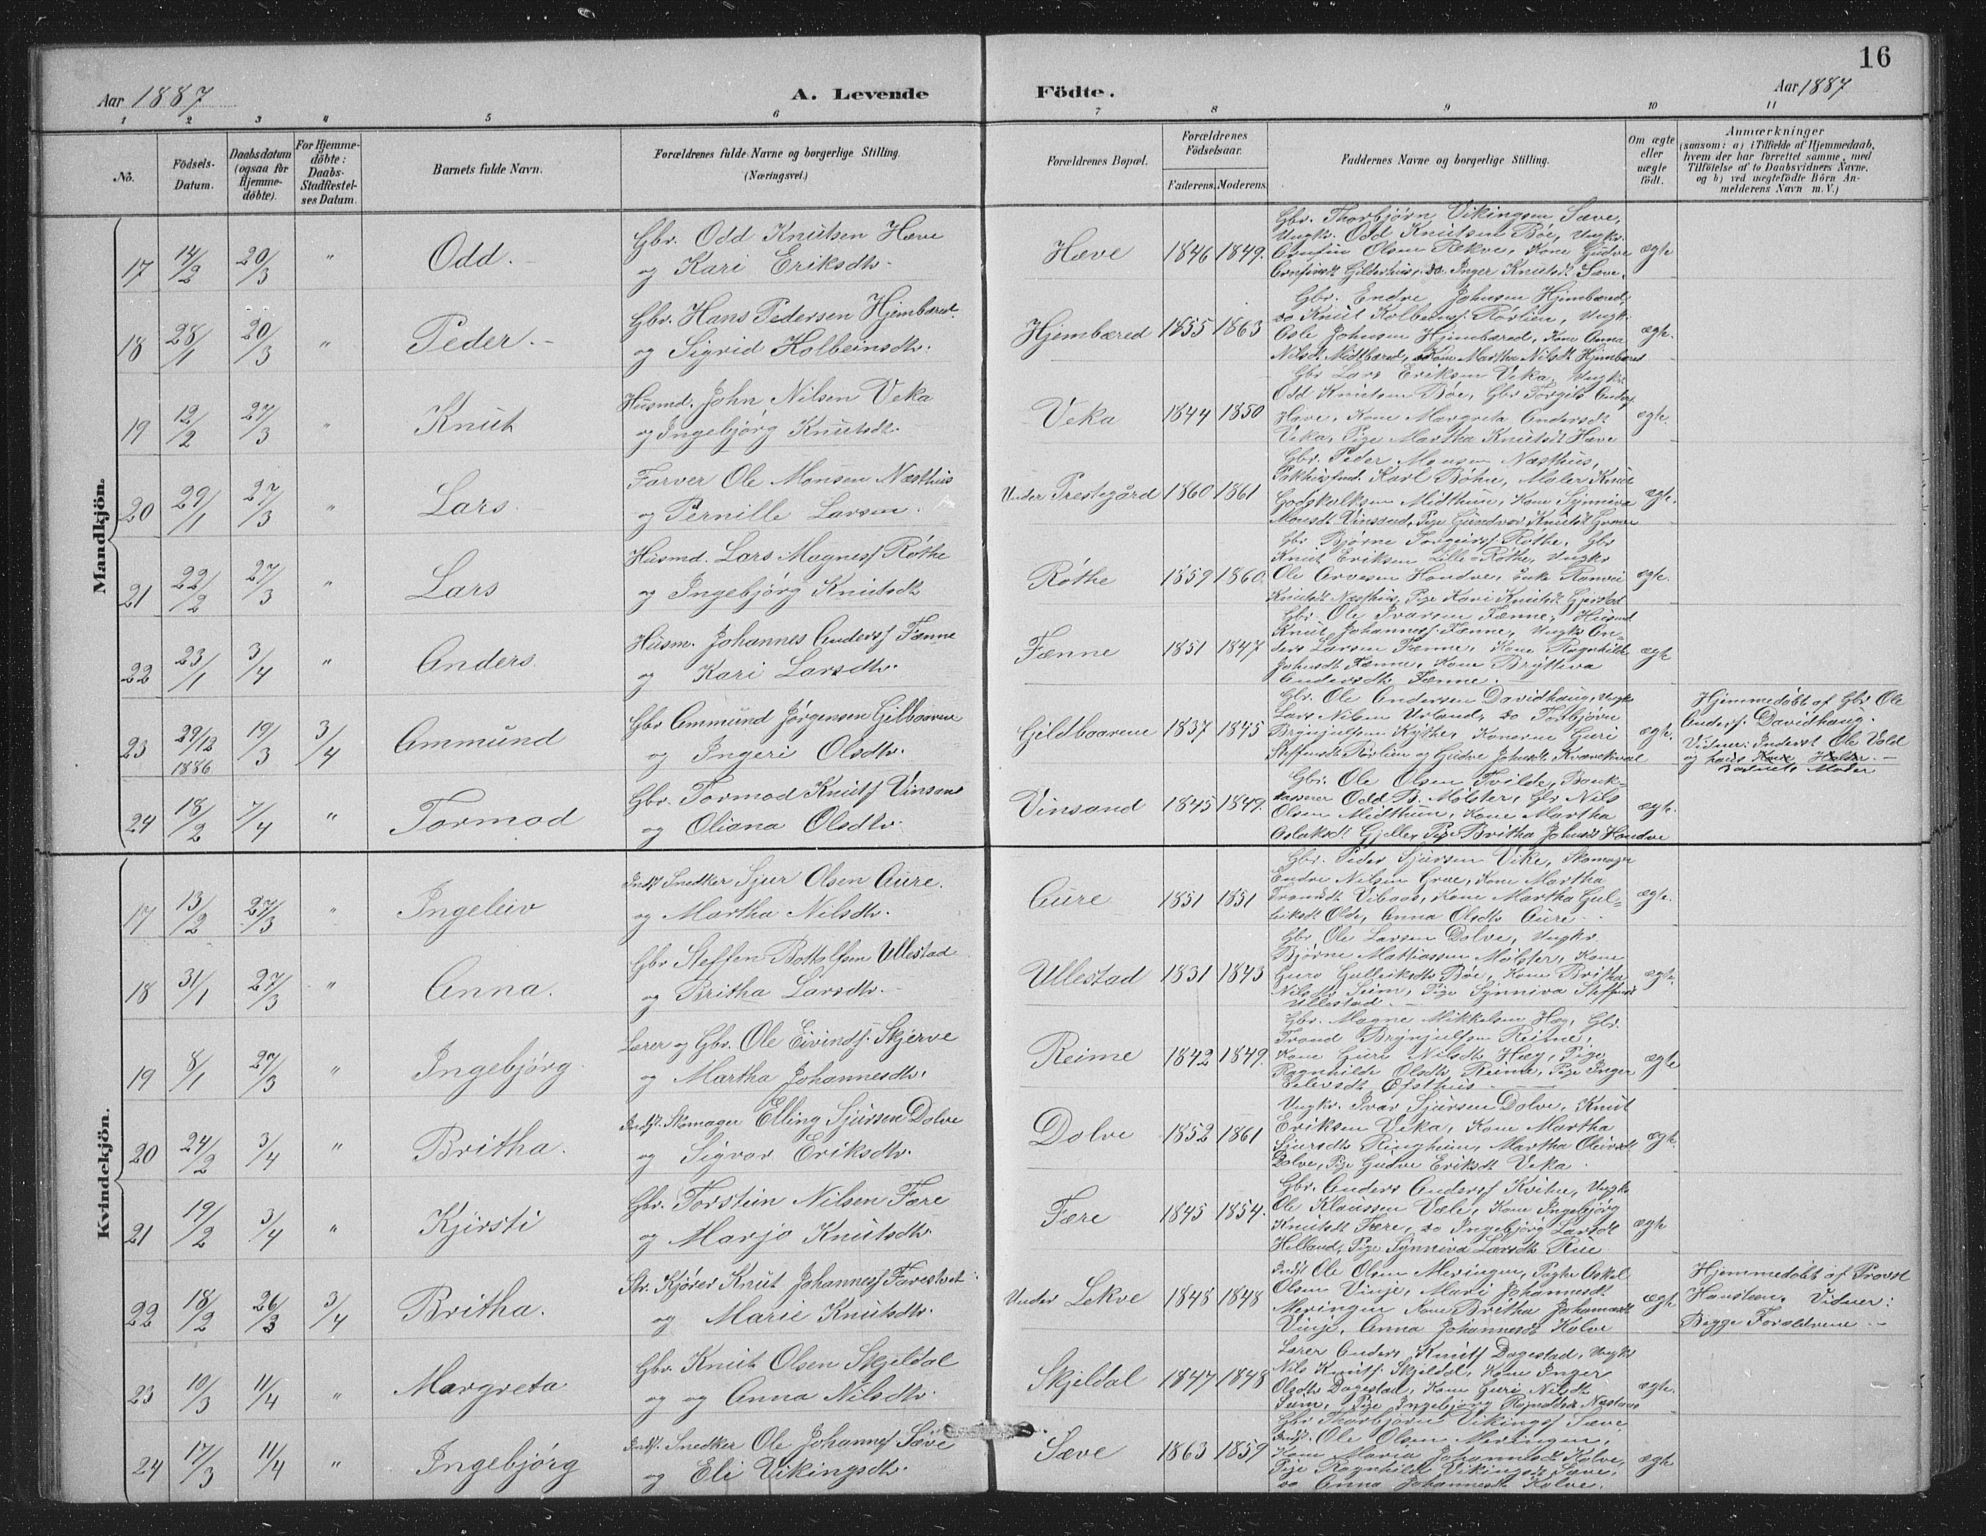 16
Aar 1887
A. Levende
Födte.
Aar 1887
1 2 3 4 5 6 7 8 9 10 11
No.
Födsels-
Datum.
Daabsdatum
(ogsaa for
Hjemme-
döbte).
For Hjemme-
döbte:
Daabs-
Stadfæstel-
ses Datum.
Barnets fulde Navn.
Forældrenes fulde Navne og borgerlige Stilling.
(Næringsvei.)
Forældrenes Bopæl.
Forældrenes
Födselsaar.
Faderens. Moderens.
Faddernes Navne og borgerlige Stilling.
Om ægte
eller
uægte
födt.
Anmærkninger
(saasom: a) i Tilfælde af Hjemmedaab,
hvem der har forrettet samme, med
Tilföielse af to Daabsvidners Navne.
og b) ved uægtefödte Börn An-
melderens Navn m. V.)
Mandkjön.
17 14/2 20/3 " Odd.
Gbr. Odd Knutsen Hæve
og Kari Eriksdtr.
Hæve 1846 1849.
Gbr. Thorbjørn Vikingsen Sæve,
Ungk. Odd Knutsen Bøe, Ungk.
Arnfin Olsen Rekve, Kone Gudve
Arnfinsdt Gilderhus, do Inger Knutsdt Sæve.
ægte
18 28/1 20/3 " Peder.
Gbr. Hans Pedersen Hjembæred
og Sigrid Kolbeinsdtr.
Hjembæred 1855 1863
Gbr. Endre Johnsen Hjembæred,
do Knut Kolbeinsf. Rørlien, Ungk.
Osle Johnsen Hjembæred, Kone Anna
Nilsdt Midtbæred, Kone Martha Nilsdt Hjembæred
ægte.
19 12/2 27/3 " Knut
Husmd. John Nilsen Veka
og Ingebjörg Knutsdt.
Veka 1844 1850
Gbr Lars Eriksen Veka, Ungk.
Odd Knutsen Bøe, Gbr Torgils Andersf
Hæve, Kone Margreta Andersdt
Veka, Pige Martha Knutsdt Hæve
ægte.
20 29/1 27/3 " Lars.
Farver Ole Monsen Næsthus
og Pernille Larsen.
Under Prestegård 1860 1861
Gbr. Peder Monsen Næsthus,
Karl Bøhn, Maler Knut
Godskalksen Midthun, Kone Synniva
Monsdt Vinsand, Pige Gundvor Knutsdt
ægte.
21 22/2 27/3 " Lars
Husmd. Lars Magnesf Röthe
og Ingebjörg Knutsdt.
Röthe 1859 1860.
Gbr Bjørne Røthe, Gbr
Knut Eriksen Lille Røthe, Ungkr
Ole Arvesen Hondve, Enke
Knutsdt Næsthus, Pige Kari Knutsdt Gjerstad
ægte.
22 23/1 3/4 " Anders.
Husm. Johannes Andersf Fænne
og Kari Larsdtr.
Fænne 1851 1847
Gbr. Ole Ivarsen Fænne, Husmd
Knut Johannesf. Fænne, Ungk An-
ders Larsen Fænne, Kone Ragnhilde
Johnsdt Fænne, Kone Bryttiva
Andersdt Fænne.
ægte
23 29/12
1886 19/3 3/4 Ammund
Gbr Ammund Jørgensen Gilbaarene
og Ingeri Olsdtr.
Gjeldbaarene 1837 1845
Gbr. Ole Andersen Davidhaug, Ungk
Lars Nilsen Urland, do Torbjørn
Brynjulfsen Kythe, Konerne Guri
Steffensdt Rørlien og Gudve Johnsdt
ægte.
Hjemmedøbt af Gbr Ole
Andersf. Davidhaug.
Vidner: Inderst Ole Vold
og hans Kone
Barnets Moder
24 18/2 7/4 " Tormod
Gbr. Tormod Knutsf Vinsand
og Oliana Olsdtr.
Vinsand 1845 1849.
Gbr. Ole Olsen Tvilde, Bank-
kasserer Odd B. Mölster, Gbr. Nils
Olsen Midthun, Kone Martha
Aslaksdt Gjelle, Pige Britha Johnsdt Hondve
ægte.
Kvindekjön.
17 13/2 27/3 " Ingeleiv
Indst Snedker Sjur Olsen Aure.
og Martha Nilsdtr.
Aure 1851 1851
Gbr. Peder Sjursen Vike, Skomager
Endre Nilsen Græe, Kone Martha
Trondsdt Kone Martha Gul-
leiksdt Olde, Anna Olsdtr Aure
ægte.
18 31/1 27/3 " Anna.
Gbr Steffen Bottolfsen Ullestad
og Britha Larsdtr.
Ullestad 1831 1843
Gbr Ole Larsen Dolve, Ungkr
Bjørne Mathiassen Mölster, Kone
Guro Gulleiksdt Bøe, Kone Britha
Nilsdt Seim, Pige Synniva Steffensdt
Ullestad
ægte.
19 8/1 27/3 " Ingebjörg
Lærer og Gbr. Ole Eivindsf. Skjerve
og Martha Johannesdtr.
Reime 1842 1849.
Gbr. Magne Mikkelsen Hæg, Gbr.
Trond Brynjulfsen Reime,
Kone Guri Nilsdt Hæg, Pige
Ragnhilde Olsdtr Reime, Pige Inger
Eilevsdt Öfsthus
ægte
20 24/2 3/4 " Britha.
Indst. Skomager Elling Sjursen Dolve
og Sigvor Eriksdtr.
Dolve 1852 1861
Ungkr. Ivar Sjursen Dolve, Knut
Eriksen Veka, Kone Martha
Sjursdt Ringheim, Martha Oleivsdt
Dolve, Pige Gudve Eriksdt Veka.
ægte.
21 19/2 3/4 " Kjirsti
Gbr. Torstein Nilsen Fære
og Marjo Knutsdtr.
Fære 1845 1854.
Gbr. Anders Andersf Kvitne, Ungk
Ole Klaussen Væle, Kone Ingebjörg
Knutsdt Fære, do Ingebjörg Larsdt
Helland, Pige Synniva Larsdt Rüe
ægte
22 18/2 26/3 3/4 Britha.
Str. Kjörer Knut Johannesf Farestveit
og Marie Knutsdtr.
Under Lekve 1848 1848
Indst Ole Olsen Meringen, Askel
Olsen Vinje, Mari Johannesdt
Meringen Kone Britha Johannesdt
Vinje, Anna Johannesdt Kolve
ægte
Hjemmedöbt af Provst
Hanssen. Vidner:
Begge Forældrene
23 10/3 11/4 " Margreta
Gbr. Knut Olsen Skjeldal
og og Anna Nilsdtr.
Skjeldal 1847 1848
Lærer Anders Knutsf Dagestad, Ungk
Nils Knutsf. Skjeldal, Kone Inger
Olsdtr Dagestad, Kone Guri Nilsdt
Seim, Pige Ingebjörg
ægte.
24 17/3 11/4 " Ingebjörg
Indst. Snedker Ole Johannesf Sæve
og Eli Vikingsdtr.
Sæve 1863 1859
Gbr Thorbjörn Vikingsf Sæve
Indst. Ole Olsen Meringen,
Kone Maria Johannesdt Kolve,
Pige Ragnhilde Vikingsdt Sæve,
do Anna Johannesdt Kolve.
ægte